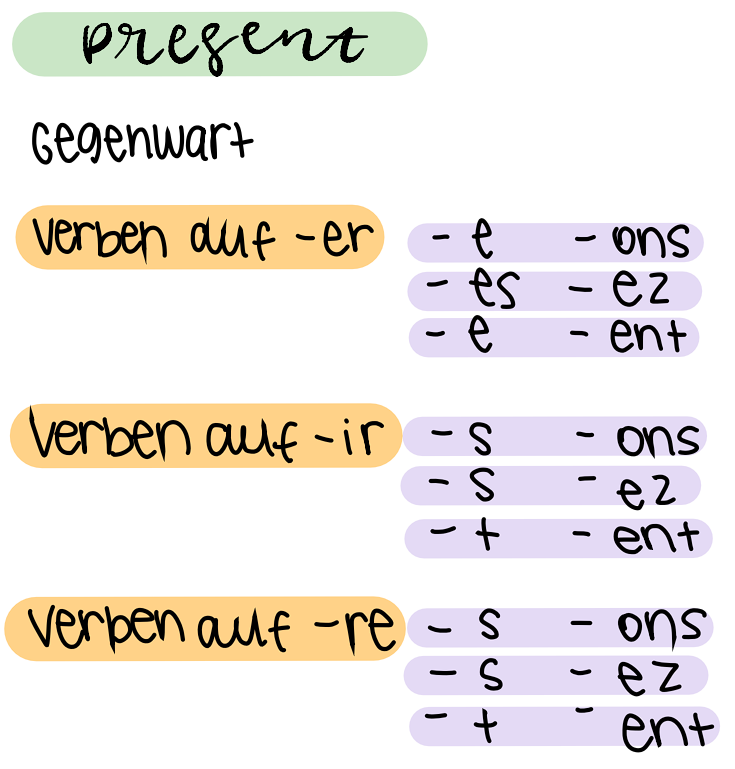 present
Gegenwart
Verben auf -er
- e - ons
- es - ez
- e - ent
Verben auf -ir
- s - ons
- s - ez
- t - ent
Verben auf -re
- s - ons
- s - ez
- t - ent